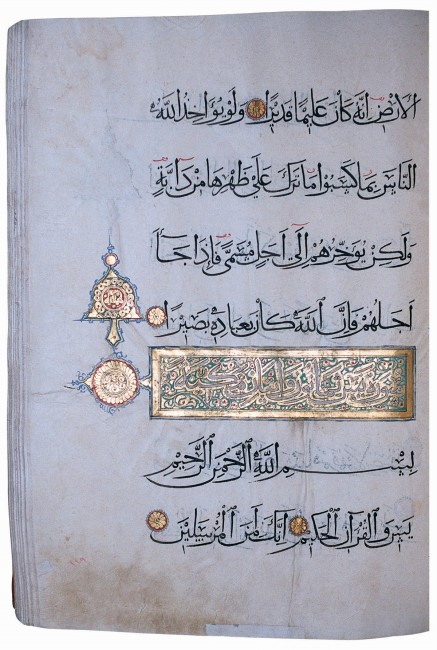 الارض انه كان عليما قديرا ولو يؤاخذ الله
الناس بما كسبوا ما ترك على ظهرها من دابة
ولكن يؤخرهم الى اجل مسمى فاذا جا
اجلهم فان الله كان بعباده بصيرا
سورة يس ثمانون مكية
بسم الله الرحمن الرحيم
يس والقرآن الحكيم انك لمن المرسلين